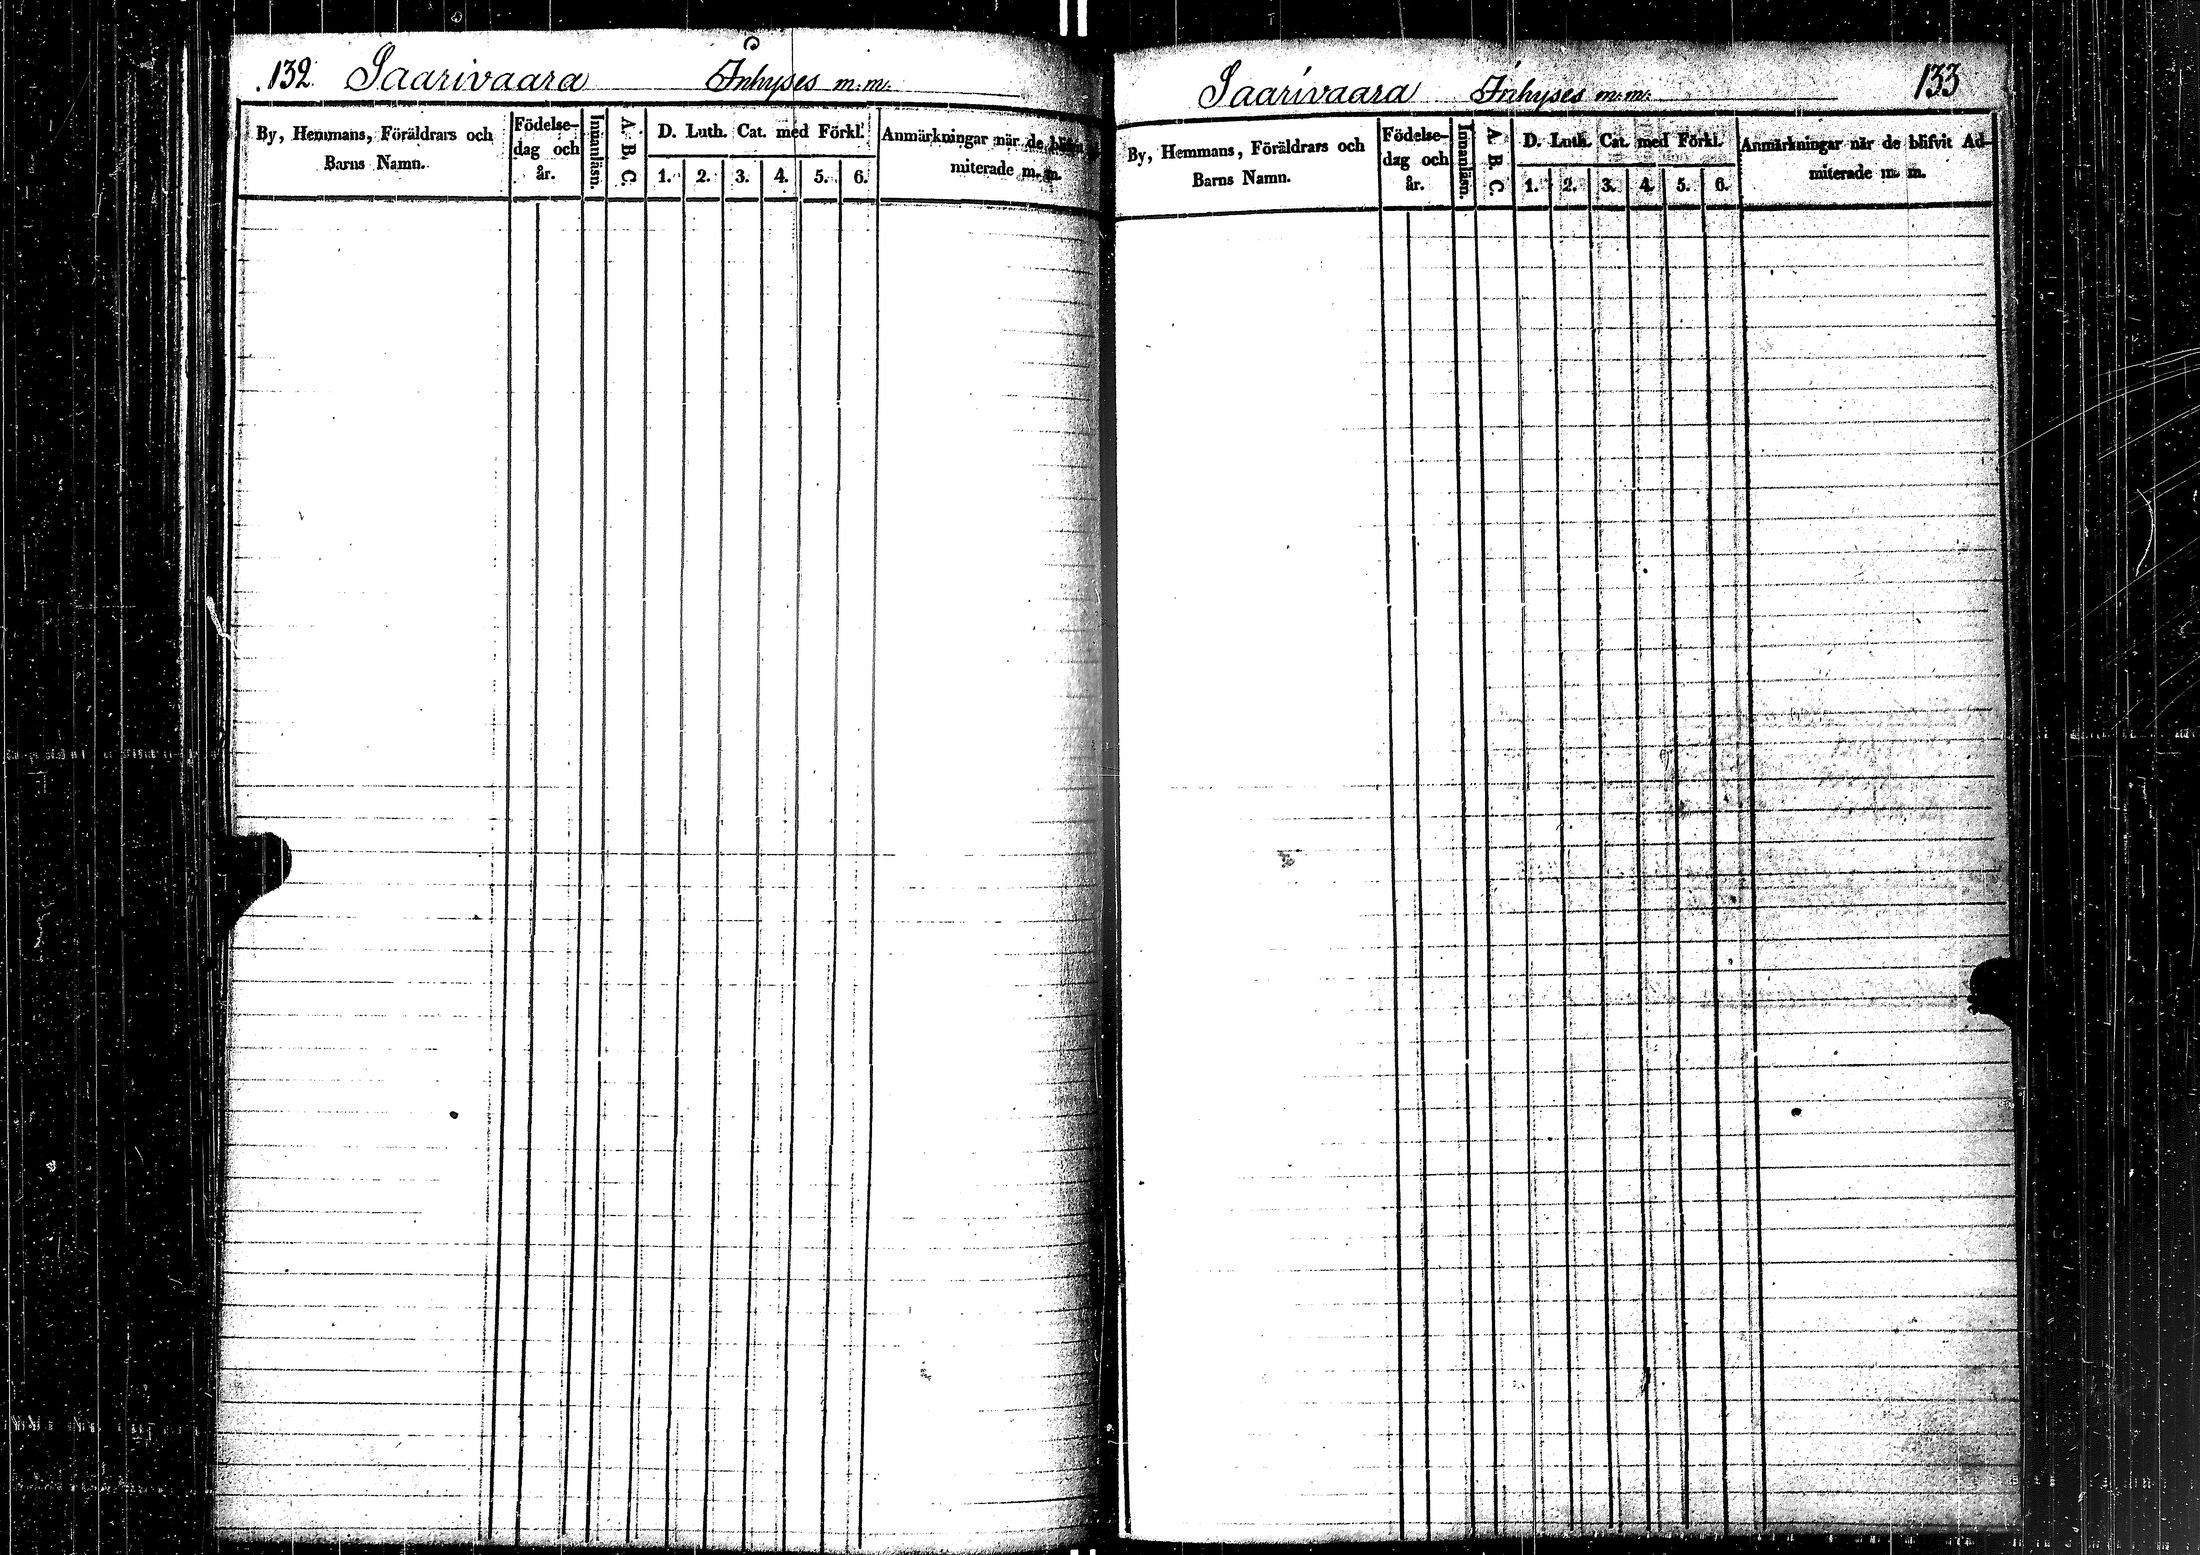 132. Saarivaara Inhyses m.m.
By, Hemmans, Föräldrars och
Barns Namn.
Födelse-
dag och
år.
Innanläsn.
A. B. C.
D. Luth. Cat. med Förkl.
1. 2. 3. 4. 5. 6.
Anmärkningar när de blifvit
miterade m. m.
Saarivaara Inhyses m.m. 133
By, Hemmans, Föräldrars och
Barns Namn.
Födelse-
dag och
år.
Innanläsn.
A. B. C.
D. Luth. Cat. med Förkl.
1. 2. 3. 4. 5. 6.
Anmärkningar när de blifvit Ad-
miterade m. m.